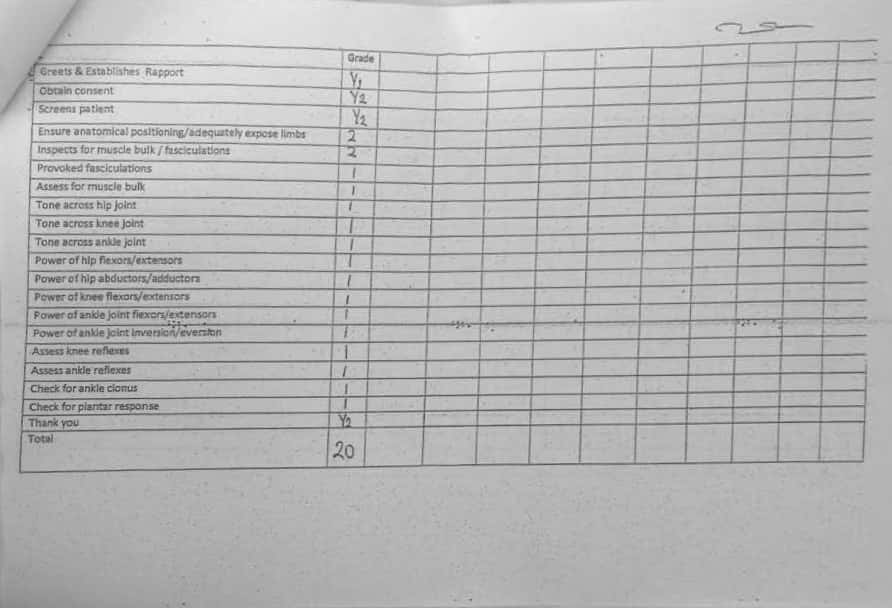 Grade
Greets & Establishes Rapport ½
Obtain consent ½
Screens patient ½
Ensure anatomical positioning/adequately expose limbs 2
Inspects for muscle bulk / fasciculations 2
Provoked fasciculations 1
Assess for muscle bulk 1
Tone across hip joint 1
Tone across knee joint 1
Tone across ankle joint 1
Power of hip flexors/extensors 1
Power of hip abductors/adductors 1
Power of knee flexors/extensors 1
Power of ankle joint flexors/extensors 1
Power of ankle joint inversion/eversion 1
Assess knee reflexes 1
Assess ankle reflexes 1
Check for ankle clonus 1
Check for plantar response 1
Thank you ½
Total 20